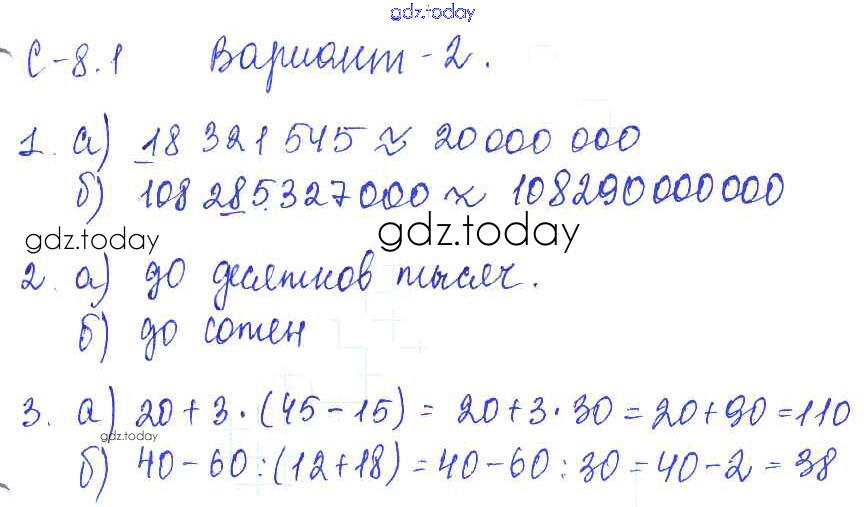 gdz.today
С-8.1 Вариант-2.
1. а) 18 321 545 ≈ 20 000 000
б) 108 285 327 000 ≈ 108290000000
gdz.today gdz.today
2. а) до десятков тысяч.
б) до сотен
3. а) 20 + 3 · (45 - 15) = 20 + 3 · 30 = 20 + 90 = 110
gdz.today
б) 40 - 60 : (12 + 18) = 40 - 60 : 30 = 40 - 2 = 38